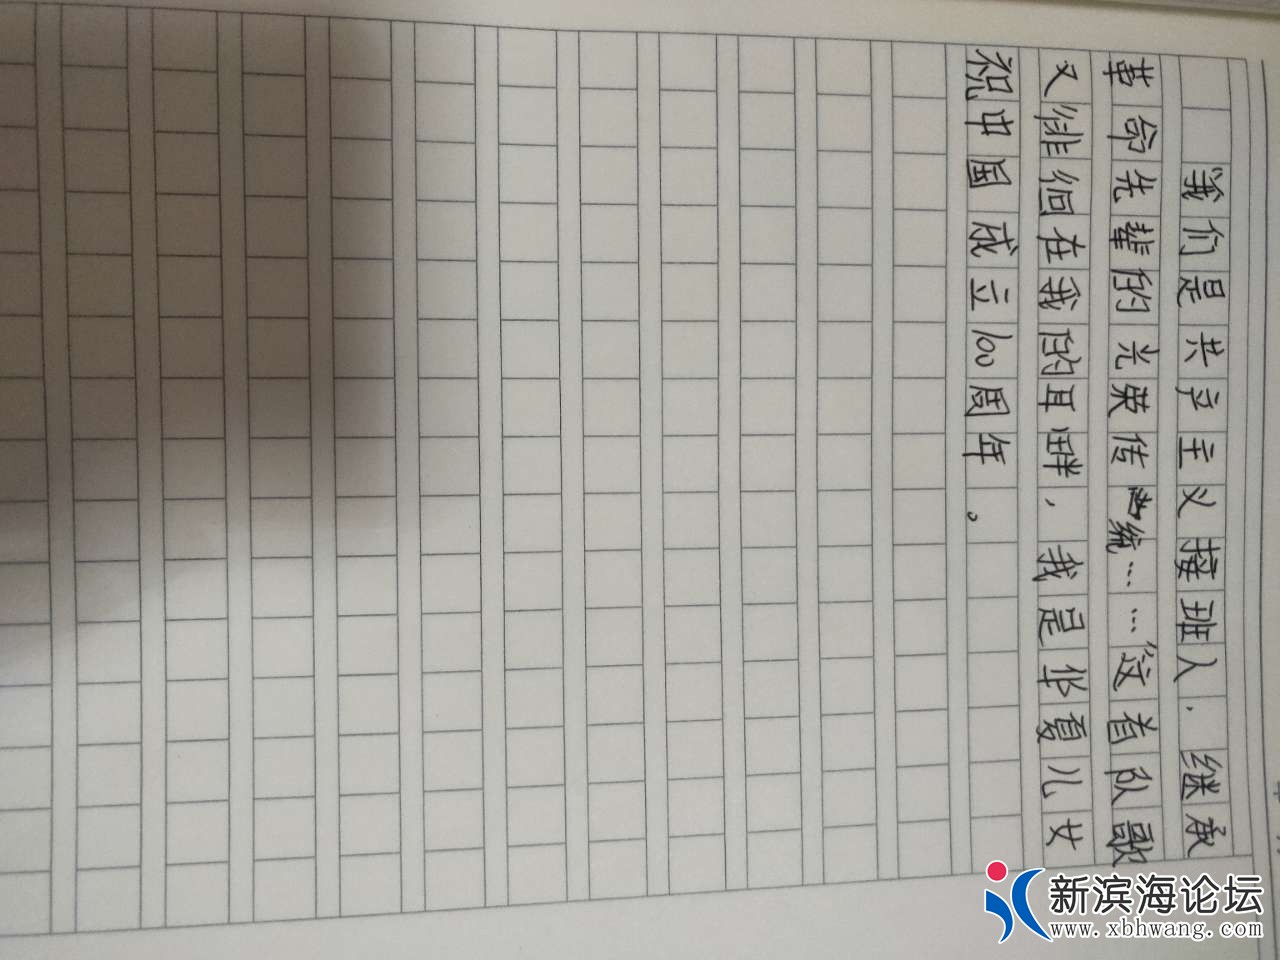 “我们是共产主义接班人，继承
革命先辈的光荣传统……”这首队歌
又徘徊在我的耳畔，我是华夏儿女
祝中国成立100周年。
新滨海论坛
www.xbhwang.com